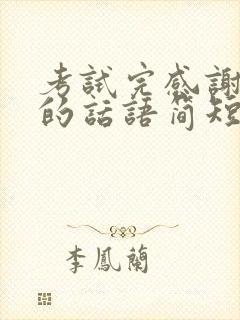 考試完感謝
的話語简短
李鳳蘭